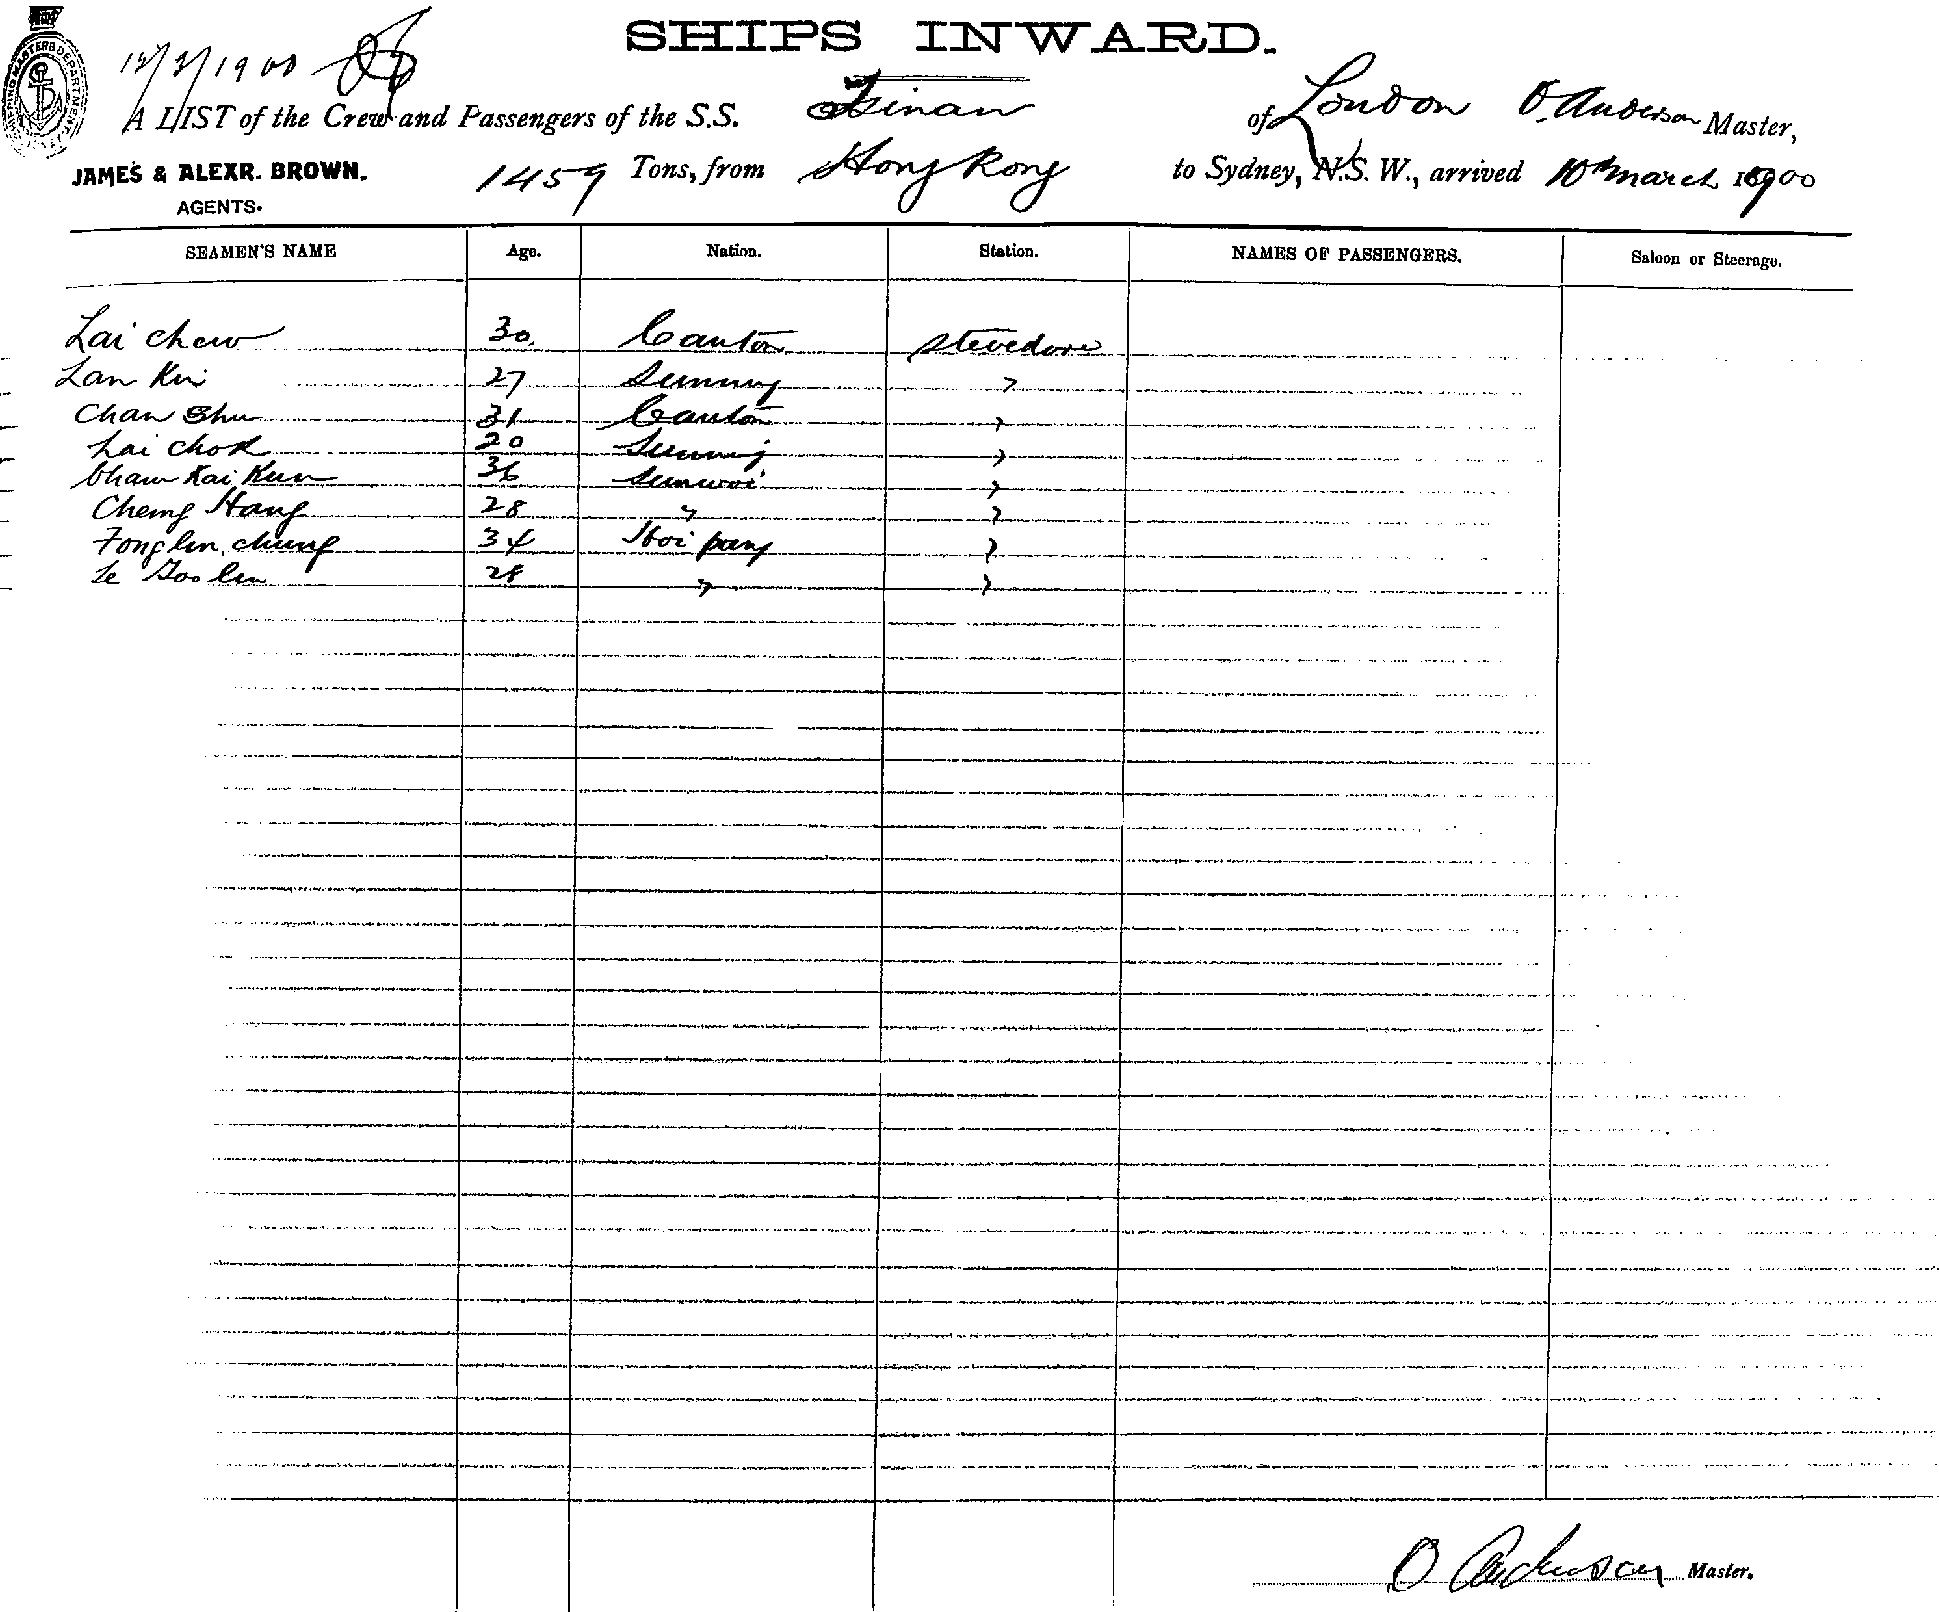 SHIPS INWARD.
12/3/1900
A LIST of the Crew and Passengers of the S.S. Tsinan of London O. Anderson Master,
JAMES & ALEXR. BROWN. 1459 Tons, from Hong Kong to Sydney, N.S.W., arrived 10th March 1900
AGENTS.
SEAMEN'S NAME Age. Nation. Station. NAMES OF PASSENGERS. Saloon or Steerage.
Lai Chew 30 Canton Stevedore
Lan Kui 27 Sunning "
Chan Shu 31 Canton "
Lai Chok 20 Sunning "
Cham Kai Kun 36 Sunwoi "
Cheng Hang 28 " "
Fong lin chung 34 Hoi pang "
Le Goo lin 28 " "
O Anderson Master.